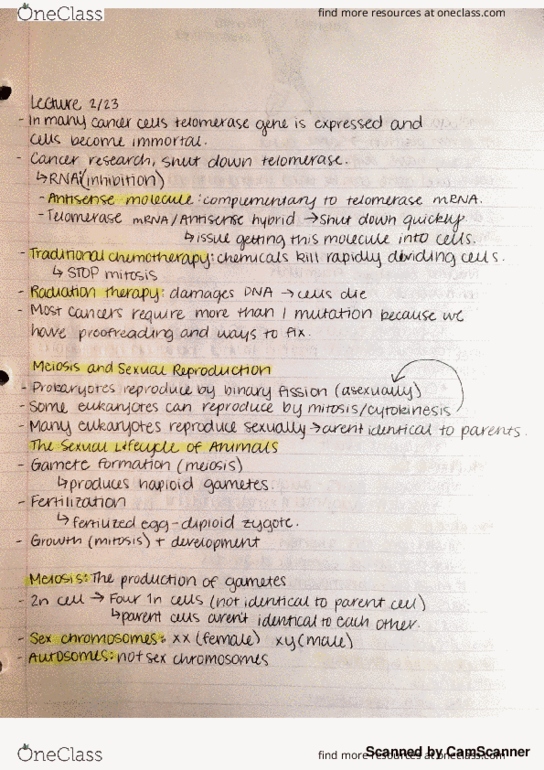 OneClass
find more resources at oneclass.com
Lecture 2/23
- In many cancer cells telomerase gene is expressed and
cells become immortal.
- Cancer research, shut down telomerase.
↳ RNAi (inhibition)
- Antisense molecule: complementary to telomerase mRNA.
- Telomerase mRNA/Antisense hybrid → shut down quickly
↳ issue getting this molecule into cells.
- Traditional chemotherapy: chemicals kill rapidly dividing cells.
↳ STOP mitosis
- Radiation therapy: damages DNA → cells die
- Most cancers require more than 1 mutation because we
have proofreading and ways to fix.
Meiosis and Sexual Reproduction
- Prokaryotes reproduce by binary fission (asexually)
- Some eukaryotes can reproduce by mitosis/cytokinesis
- Many eukaryotes reproduce sexually → arent identical to parents.
The Sexual Lifecycle of Animals
- Gamete formation (meiosis)
↳ produces haploid gametes.
- Fertilization
↳ fertilized egg - diploid zygote.
- Growth (mitosis) + development
Meiosis: The production of gametes
- 2n cell → Four 1n cells (not identical to parent cell)
↳ parent cells aren't identical to each other.
- Sex chromosomes: xx (female) xy (male)
- Autosomes: not sex chromosomes
OneClass
find more resources at oneclass.com
Scanned by CamScanner